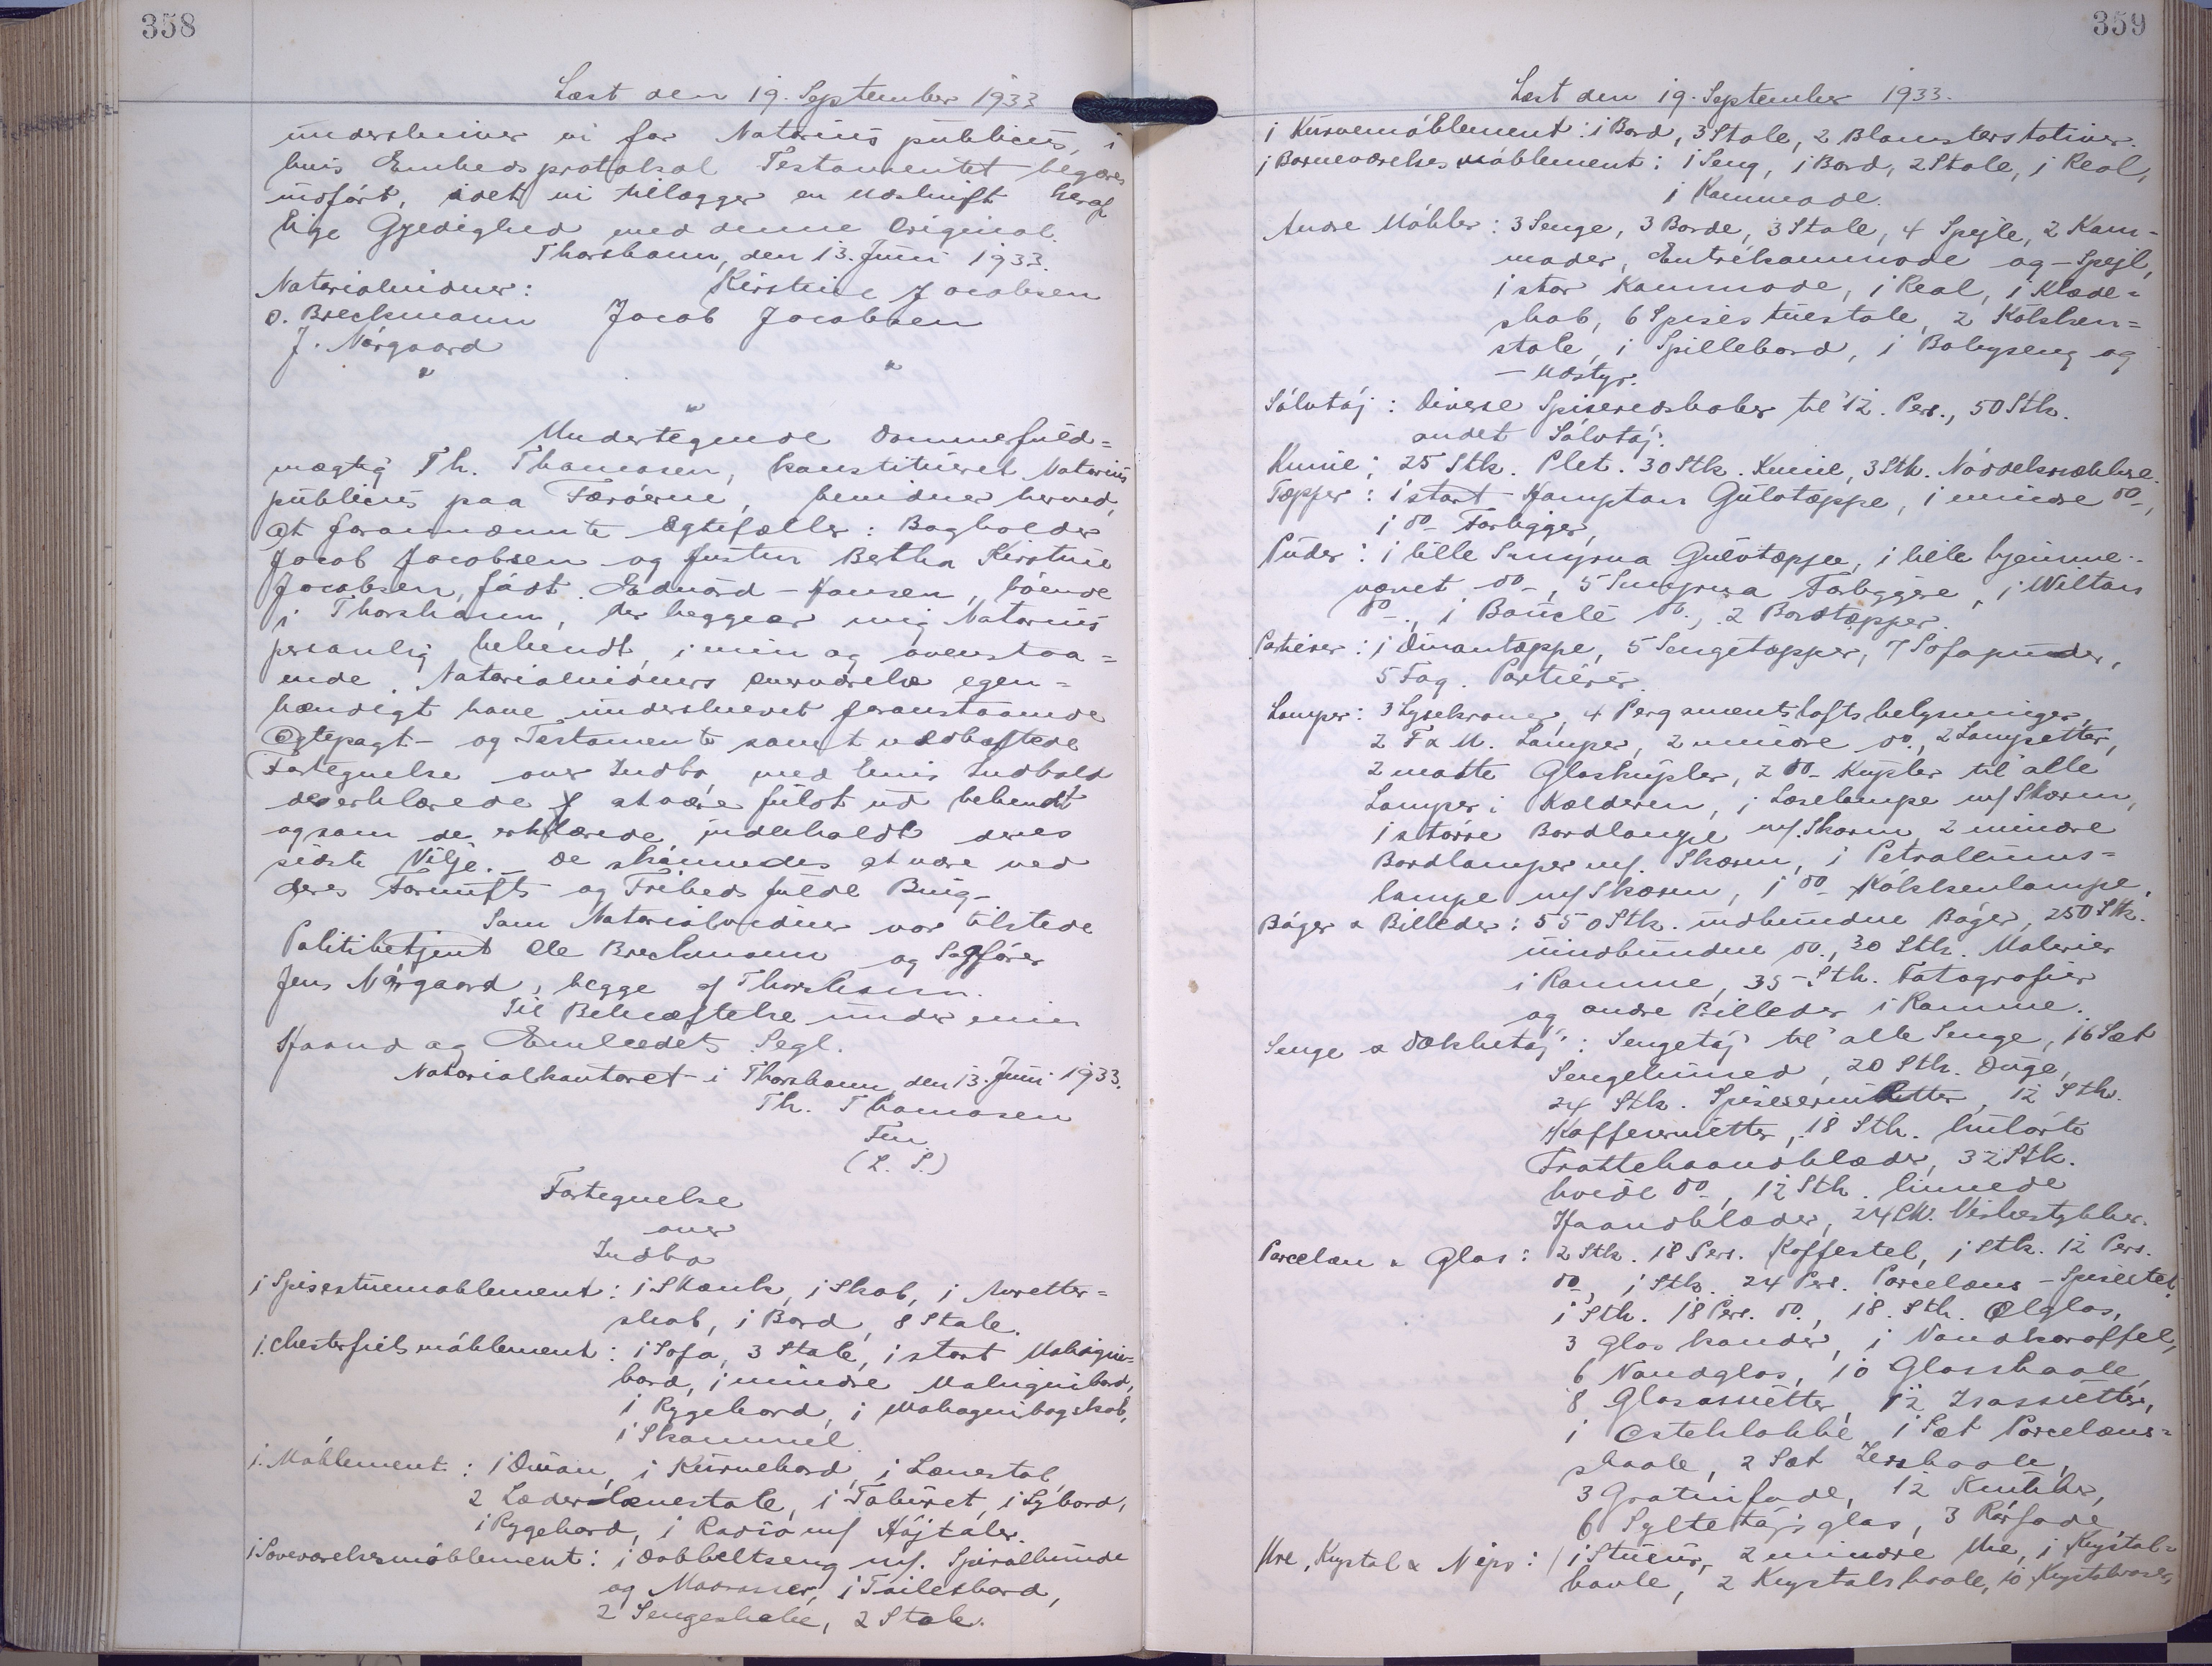 358
Læst den 19. September 1933
underskriver vi for Notarius publicus, i
hvis Embedsprotokol Testamentet begæres
indført, idet vi tillægger en Udskrift heraf
lige Gyldighed med denne Original.
Thorshavn, den 13. Juni 1933.
Notarialvidner: Kirstine Jacobsen
O. Breckmann Jacob Jacobsen
J. Nórgaard
" "
"
Undertegnede Dommerfuld=
mægtig Th. Thomasen, konstitueret Notarius
publicus paa Færóerne, bevidner herved,
at forannævnte Ægtefæller: Bogholder
Jacob Jacobsen og Hustru Bertha Kirstine
Jacobsen, fódt Edvard-Hansen, boende
i Thorshavn, der begge er mig Notarius
personlig bekendt, i min og ovenstaa=
ende Notarialvidners Overværelse egen=
hændigt have underskrevet foranstaaende
Ægtepagt- og Testamente samt vedhæftede
Fortegnelse over Indbo, med hvis Indhold
de erklærede at være fuldt ud bekendt
og som de erklærede indeholdt deres
sidste Vilje. De skónnedes at være ved
deres Fornufts og Friheds fulde Brug.
Som Notarialvidner var tilstede
Politibetjent Ole Breckmann og Sagfórer
Jens Nórgaard, begge af Thorshavn.
Til Bekræftelse under min
Haand og Embedets Segl.
Notarialkontoret i Thorshavn, den 13. Juni 1933.
Th. Thomasen
Fm.
(L. S.)
Fortegnelse
over
Indbo
1 Spisestuemóblement: 1 Skænk, 1 Skab, 1 Anretter=
skab, 1 Bord, 8 Stole.
1 Chesterfieldmóblement: 1 Sofa, 3 Stole, 1 stort Mahogni=
bord, 1 mindre Mahognibord,
1 Rygebord, 1 Mahognibogskab,
1 Skammel.
1 Móblement: 1 Divan, 1 Kurvebord, 1 Lænestol,
2 Læderlænestole, 1 Taburet, 1 Sybord,
1 Rygebord, 1 Radio m/ Hójtaler.
1 Soveværelsesmóblement: 1 Dobbeltseng m/. Spiralbunde
og Madrasser, 1 Toiletbord,
2 Sengeskabe, 2 Stole.
359
Læst den 19. September 1933.
1 Kurvemóblement: 1 Bord, 3 Stole, 2 Blomsterstativer.
1 Borneværelsesmóblement: 1 Seng, 1 Bord, 2 Stole, 1 Reol,
1 Kommode.
Andre Móbler: 3 Senge, 3 Borde, 3 Stole, 4 Spejle, 2 Kom-
moder, Entrékommode og -Spejl,
1 stor Kommode, 1 Reol, 1 Klæde=
skab, 6 Spisestuestole, 2 Kókken=
stole, 1 Spillebord, 1 Babyseng og
- Udstyr.
Sólvtój: Diverse Spiseredskaber til 12. Pers., 50 Stk.
andet Sólvtój.
Knive: 25 Stk. Plet. 30 Stk. Knive, 3 Stk. Nóddeknækkere.
Tæpper: 1 stort Hampton Gulvtæppe, 1 mindre do-,
1 do- Forligger,
Puder: 1 lille Smyrna Gulvtæppe, 1 lille hjemme-
vævet do-, 5 Smyrna Forliggere, 1 Wilton
do-., 1 Bouclé do., 2 Bordtæpper.
Portierer: 1 Divantæppe, 5 Sengetæpper, 7 Sofapuder,
5 Fag. Portiérer.
Lamper: 3 Lysekroner, 4 Pergamentsloftsbelysninger,
2 P & H. Lamper, 2 mindre do., 2 Lampetter,
2 matte Glaskupler, 2 do- Kupler til alle
Lamper i Kælderen, 1 Læselampe m/ Skærm,
1 stórre Bordlampe m/. Skærm, 2 mindre
Bordlamper m/. Skærm, 1 Petroleums=
lampe m/ Skærm, 1 do- Kókkenlampe.
Bóger & Billeder: 550 Stk. indbundne Bóger, 250 Stk.
uindbundne do., 30 Stk. Malerier
i Ramme, 35 Stk. Fotografier
og andre Billeder i Ramme.
Senge & Dækketój: Sengetój til alle Senge, 16 Sæt
Sengelinned, 20 Stk. Duge,
24 Stk. Spiseservietter, 12 Stk.
Kaffeservietter, 18 Stk. kulórte
Frottehaandklæder, 32 Stk.
hvide do-, 12 Stk. linnede
Haandklæder, 24 Stk. Viskestykker.
Porcelæn & Glas: 2 Stk. 18 Pers. Kaffestel, 1 Stk. 12 Pers.
do-, 1 Stk. 24 Pers. Porcelæns-Spisestel,
1 Stk. 18 Pers. do., 18. Stk. Ølglas,
3 Glaskander, 1 Vandkaraffel,
6 Vandglas, 10 Glasskaale,
8 Glasassietter, 12 Isassietter,
1 Osteklokke, 1 Sæt Porcelæns=
skaale, 2 Sæt Lerskaale,
3 Gratinfade, 12 Krukker,
6 Syltetójsglas, 3 Rárfade
Ure, Krystal & Nips: 1 Stueur, 2 mindre Ure, 1 Krystal=
bowle, 2 Krystalskaale, 10 Krystalvaser,